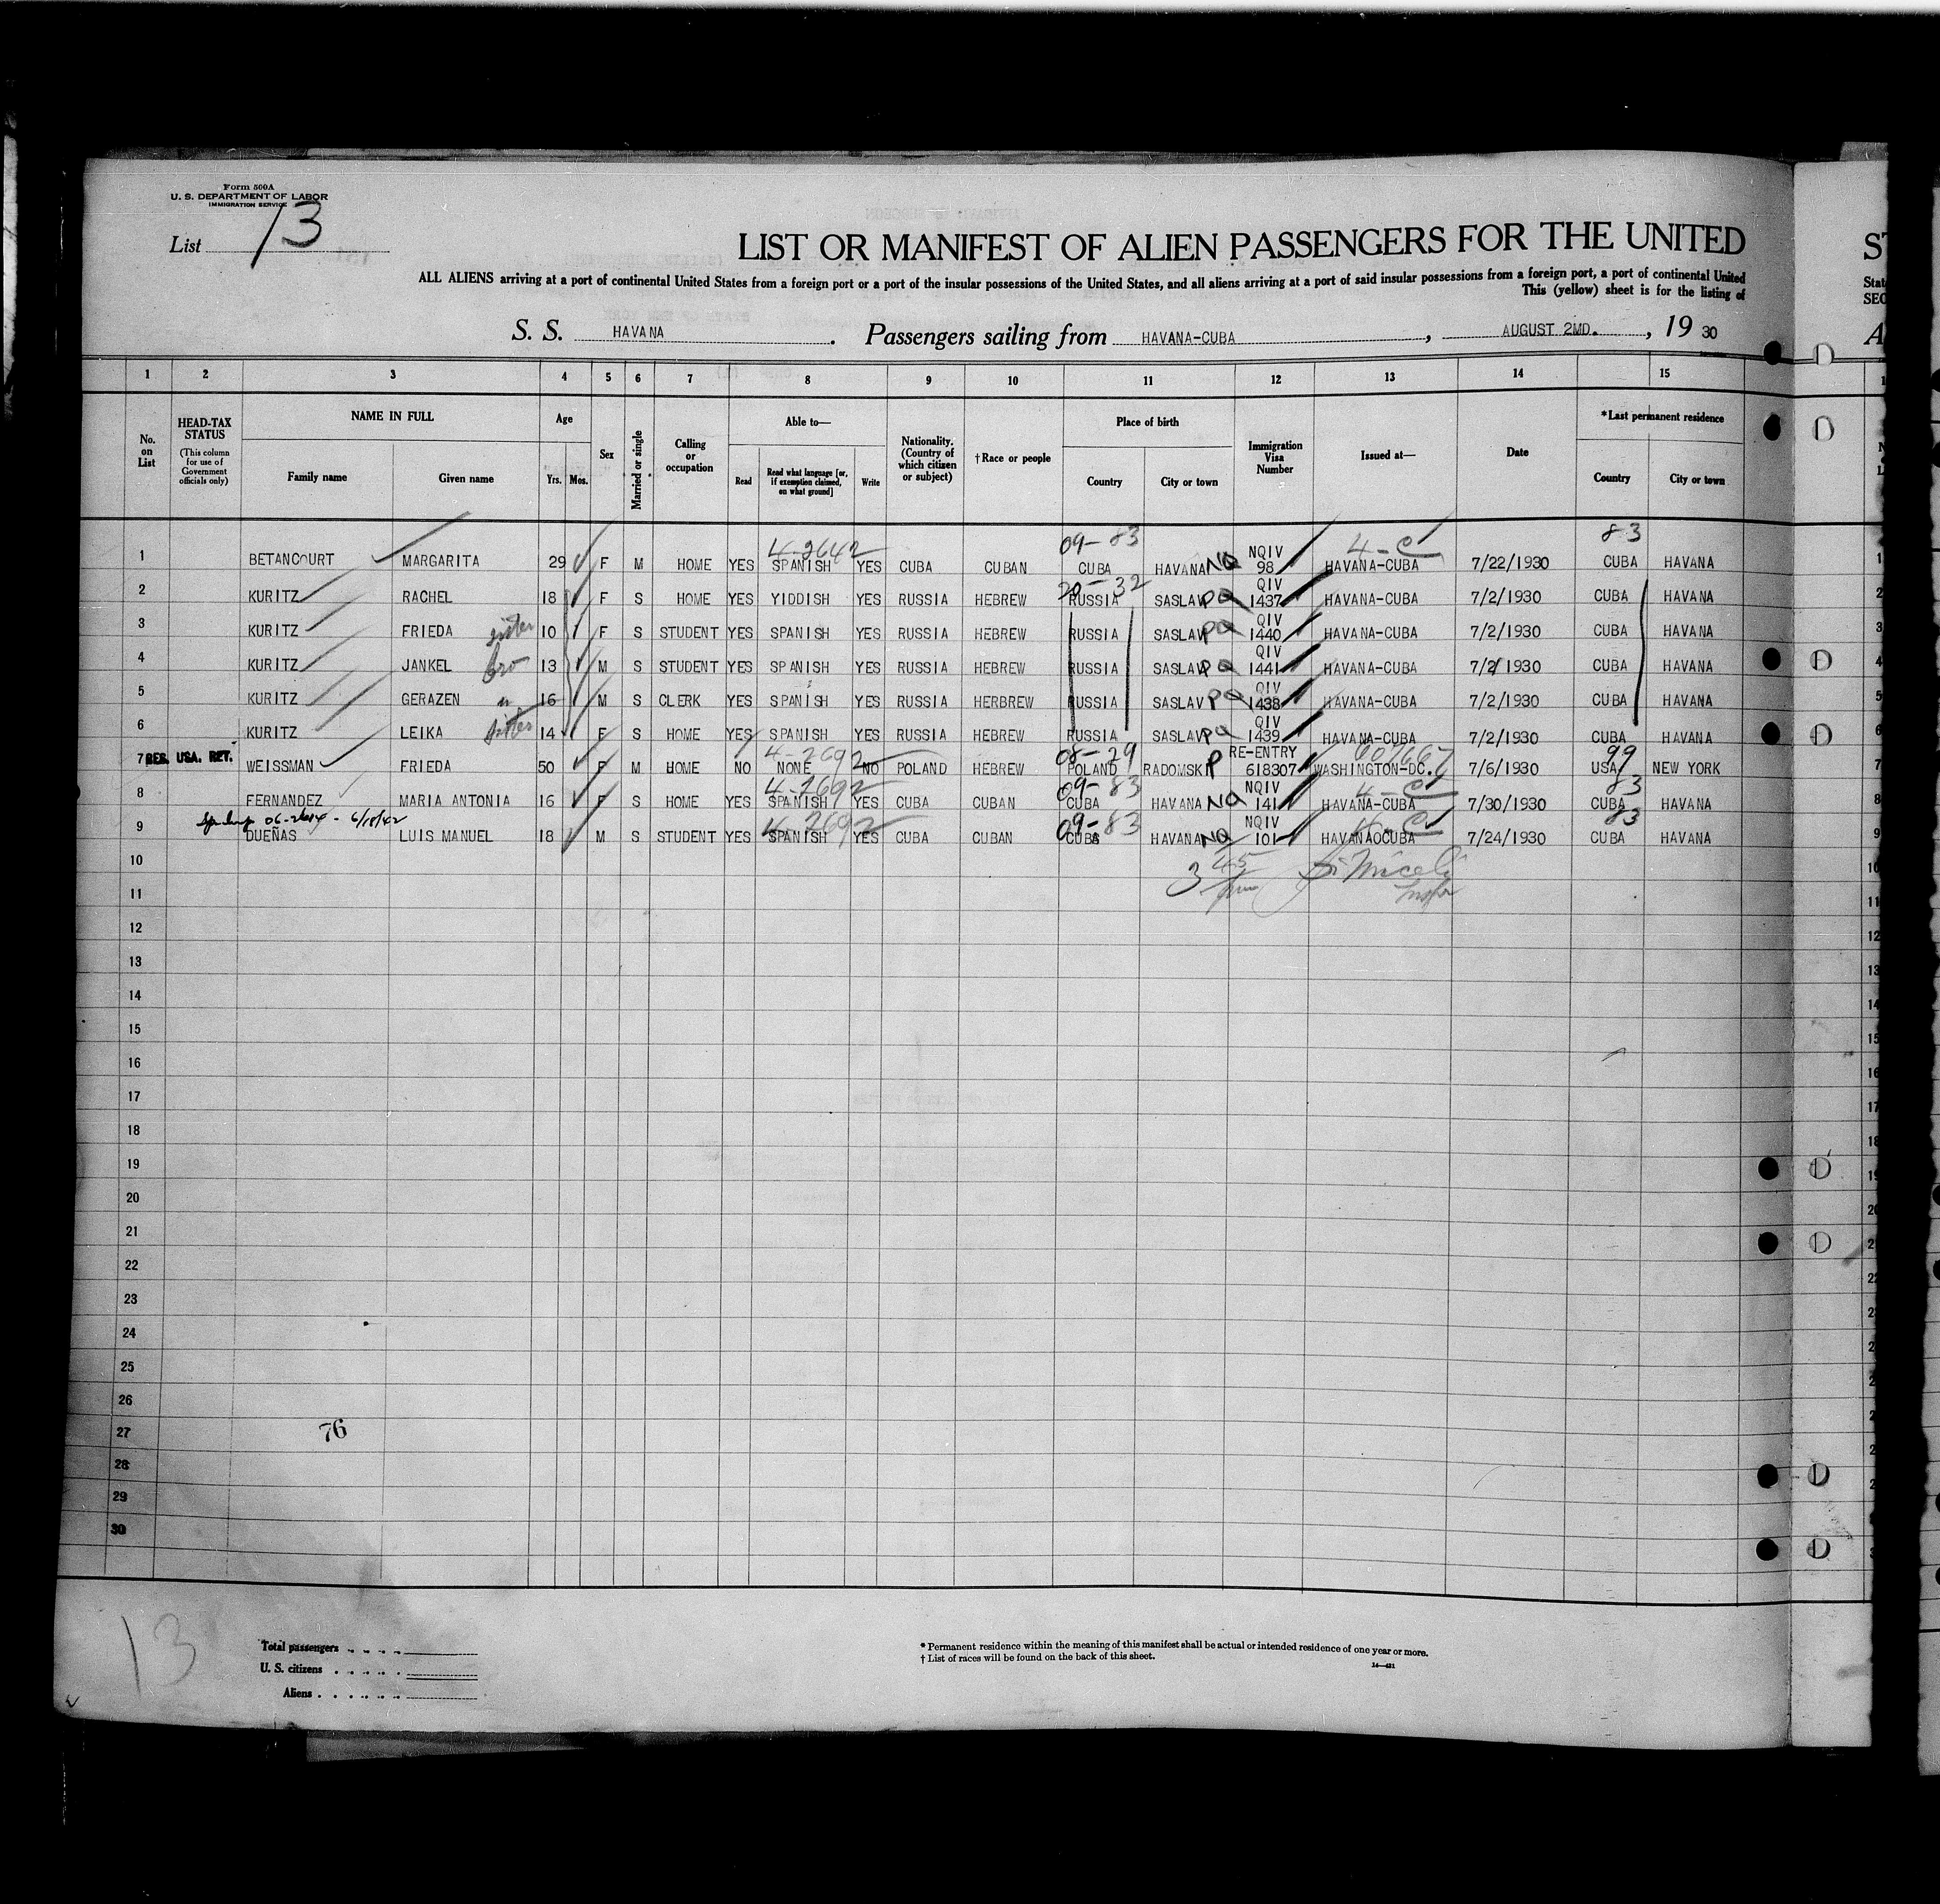 Form 500A
U. S. DEPARTMENT OF LABOR
IMMIGRATION SERVICE
List 13
LIST OR MANIFEST OF ALIEN PASSENGERS FOR THE UNITED
ALL ALIENS arriving at a port of continental United States from a foreign port or a port of the insular possessions of the United States, and all aliens arriving at a port of said insular possessions from a foreign port, a port of continental United
This (yellow) sheet is for the listing of
S. S. HAVANA . Passengers sailing from HAVANA-CUBA , AUGUST 2MD. , 19 30
1 2 3 4 5 6 7 8 9 10 11 12 13 14 15
No. on List
HEAD-TAX STATUS
(This column for use of Government officials only)
NAME IN FULL
Family name
Given name
Age
Yrs. Mos.
Sex
Married or single
Calling or occupation
Able to—
Read
Read what language [or, if exemption claimed, on what ground]
Write
Nationality. (Country of which citizen or subject)
†Race or people
Place of birth
Country
City or town
Immigration Visa Number
Issued at—
Date
*Last permanent residence
Country
City or town
4-2642 09-83 NQIV 4-C 83
1 BETANCOURT MARGARITA 29 F M HOME YES SPANISH YES CUBA CUBAN CUBA HAVANA NQ 98 HAVANA-CUBA 7/22/1930 CUBA HAVANA 1
20-32 QIV
2 KURITZ RACHEL 18 F S HOME YES YIDDISH YES RUSSIA HEBREW RUSSIA SASLAV PQ 1437 HAVANA-CUBA 7/2/1930 CUBA HAVANA 2
QIV
3 KURITZ FRIEDA sister 10 F S STUDENT YES SPANISH YES RUSSIA HEBREW RUSSIA SASLAV PQ 1440 HAVANA-CUBA 7/2/1930 CUBA HAVANA 3
QIV
4 KURITZ JANKEL bro 13 M S STUDENT YES SPANISH YES RUSSIA HEBREW RUSSIA SASLAV PQ 1441 HAVANA-CUBA 7/2/1930 CUBA HAVANA 4
QIV
5 KURITZ GERAZEN " 16 M S CLERK YES SPANISH YES RUSSIA HERBREW RUSSIA SASLAV PQ 1438 HAVANA-CUBA 7/2/1930 CUBA HAVANA 5
QIV
6 KURITZ LEIKA sister 14 F S HOME YES SPANISH YES RUSSIA HEBREW RUSSIA SASLAV PQ 1439 HAVANA-CUBA 7/2/1930 CUBA HAVANA 6
4-2692 08-29 RE-ENTRY 607667 99
7 RES. USA. RET. WEISSMAN FRIEDA 50 F M HOME NO NONE NO POLAND HEBREW POLAND RADOMSK P 618307 WASHINGTON-DC. 7/6/1930 USA NEW YORK 7
4-2692 09-83 NQIV 4-C 83
8 FERNANDEZ MARIA ANTONIA 16 F S HOME YES SPANISH YES CUBA CUBAN CUBA HAVANA NQ 141 HAVANA-CUBA 7/30/1930 CUBA HAVANA 8
06-2614 - 6/18/42 4-2692 09-83 NQIV 4-C 83
9 DUEÑAS LUIS MANUEL 18 M S STUDENT YES SPANISH YES CUBA CUBAN CUBA HAVANA NQ 101 HAVANAOCUBA 7/24/1930 CUBA HAVANA 9
10
3 45
11
12
13
14
15
16
17
18
19
20
21
22
23
24
25
26
27
76
28
29
30
13
Total passengers
U. S. citizens
Aliens
* Permanent residence within the meaning of this manifest shall be actual or intended residence of one year or more.
† List of races will be found on the back of this sheet.